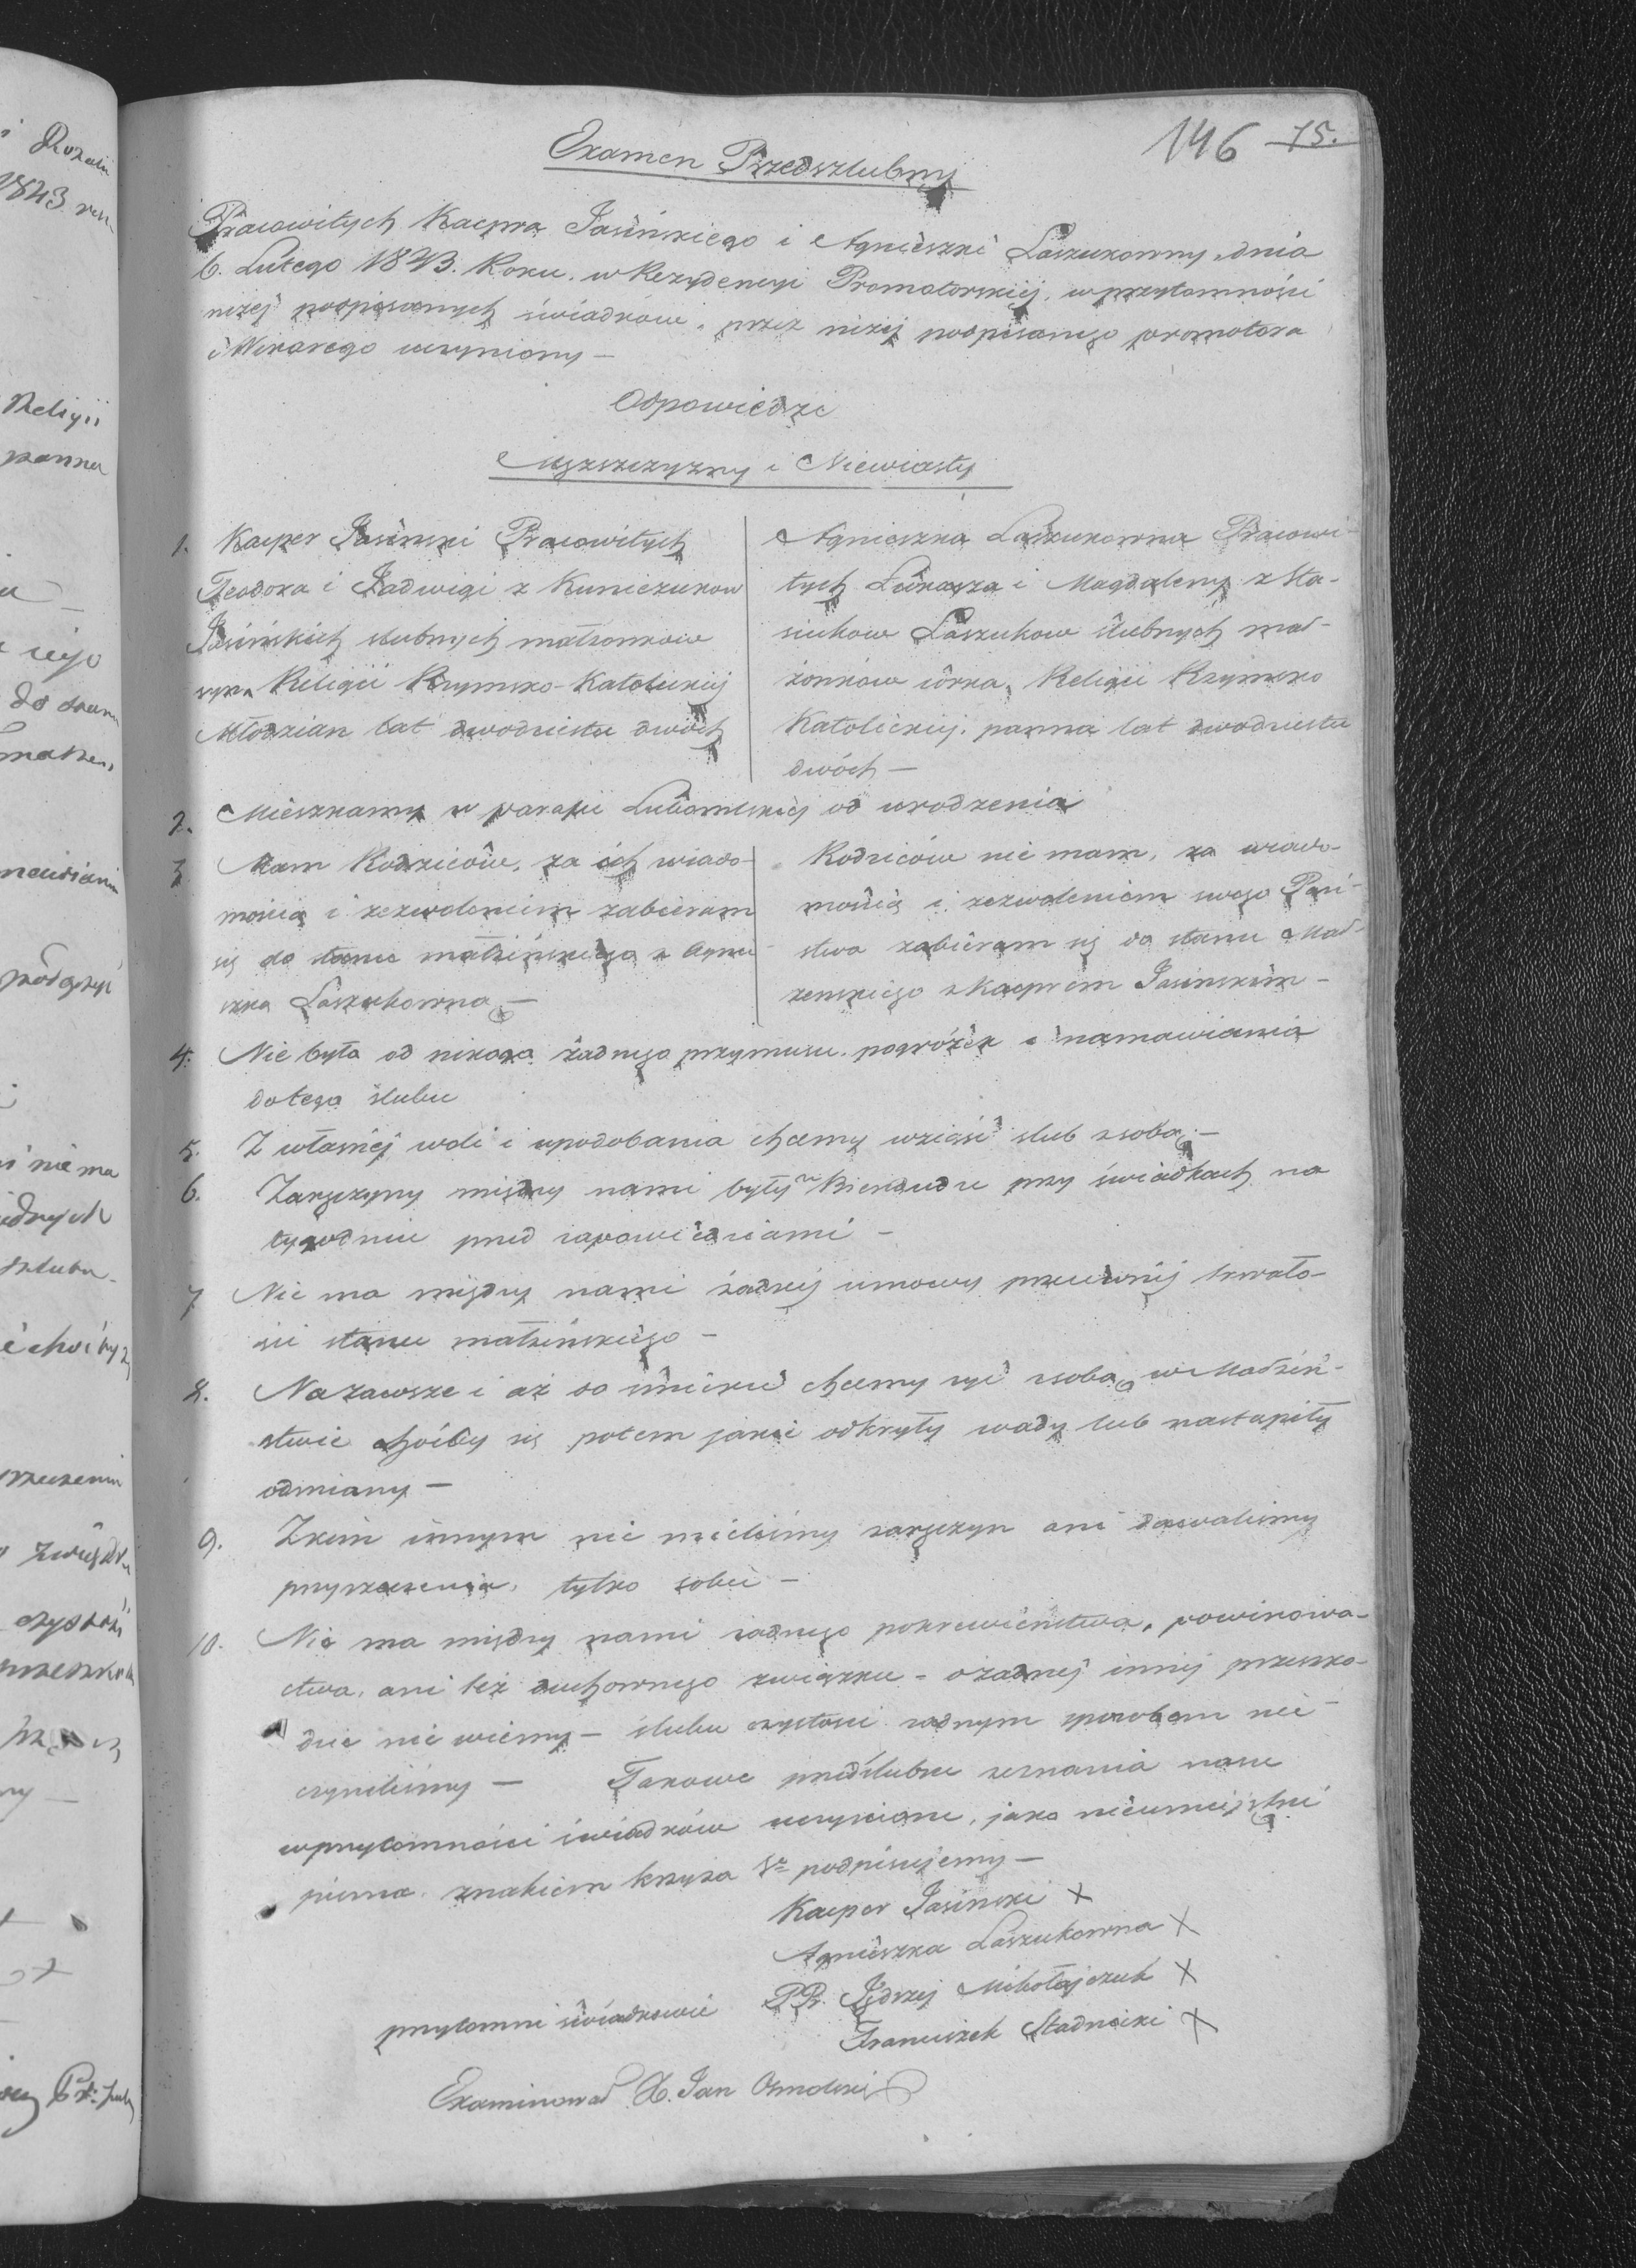 146 75.
Examen Przedszlubny
Pracowitych Kacpra Jasińskiego i Agnieszki Laszukowny, dnia
6. Lutego 1843. Roku. w Rezydencyi Promotorskiej, w przytomności
niżej podpisanych świadków, przez niżej podpisanego promotora
i Wikarego uczyniony —
Odpowiedzi
Męzszczyzny i Niewiasty
1. Kacper Jasinski Pracowitych
Teodora i Jadwigi z Kuniczukow
Jasińskich slubnych małżonkow
syn, Religii Rzymsko-Katolickiej
Młodzian lat dwodziestu dwóch
Agnieszka Laszukowna Pracowi-
tych Łukasza i Magdaleny z Sta-
siukow Laszukow slubnych mał-
żonków córka, Religii Rzymsko
Katolickiej. panna lat dwodziestu
dwóch —
2. Mieszkamy w parafii Lubomlskiej od urodzenia
3. Mam Rodziców, za ich wiado-
mością i zezwoleniem zabieram
się do stanu małżińskiego z Agnie-
szką Laszukowną —
Rodziców nie mam, za wiado-
mością i zezwoleniem swego Pań-
stwa zabieram się do stanu Mał-
zenskiego z Kacprem Jasinskim —
4. Nie była od nikogo żadnego przymusu, pogróżek i namawiania
do tego slubu
5. Z własnej woli i upodobania chcemy wziąść slub z sobą. —
6. Zaręczyny między nami były w przy świadkach na
tygodniu pred zapowiedziami —
7 Nie ma między nami żadnej umowy przeciwnej trwało-
ści stanu małżińskiego —
8. Na zawsze i aż do śmierci chcemy żyć z sobą w Małżeń-
stwie choćby się potem jakie odkryły wady lub nastąpiły
odmiany —
9. Z kim innym nie mieliśmy zaręczyn ani dawaliśmy
przyrzeczenia, tylko sobie —
10. Nie ma między nami żadnego pokrewieństwa, powinowa-
ctwa, ani też duchownego związku - o żadnej innej przeszko-
dzie nie wiemy — slubu czystości żadnym sposobem nie
czyniliśmy — Takowe przedślubne zeznania nasze
w przytomności świadków uczynione, jako nieumiejętni
pisma, znakiem krzyża Sgo podpisujemy —
Kacper Jasinski X
Agnieszka Laszukowna X
przytomni świadkowie PPr. Jędrzej Mikołajczuk X
Franciszek Stadnicki X
Examinował X. Jan